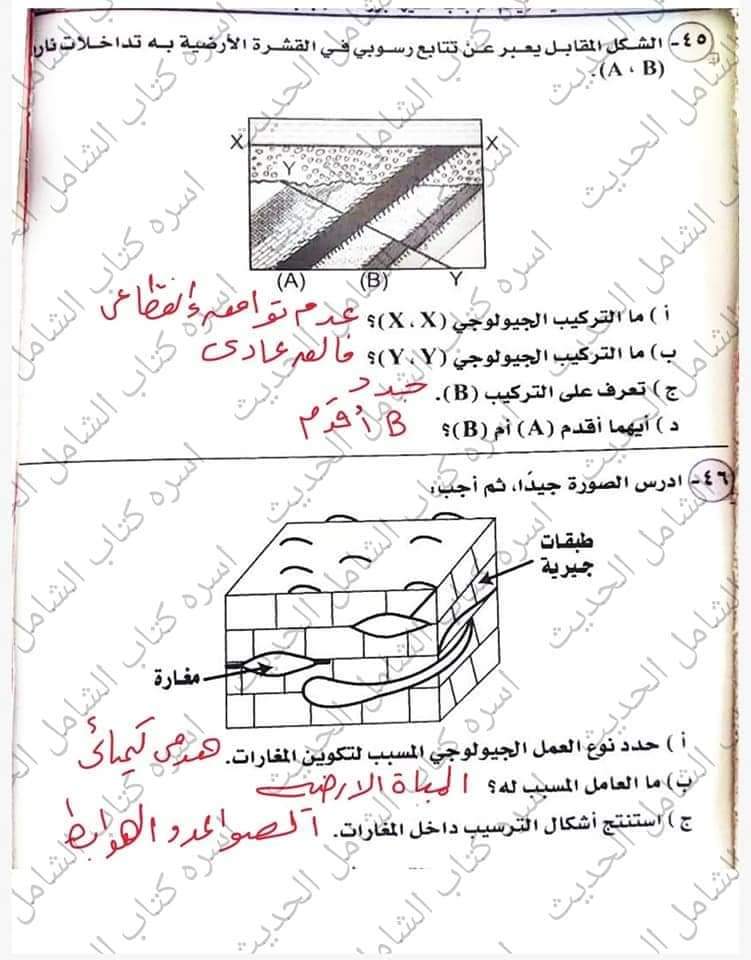 ٤٥- الشكل المقابل يعبر عن تتابع رسوبي في القشرة الأرضية به تداخلات نار
(A ، B).
X X
Y
(A) (B) Y
أ ) ما التركيب الجيولوجي (X ، X)؟ عدم توافق انقطاعى
ب) ما التركيب الجيولوجي (Y ، Y)؟ فالق عادى
ج ) تعرف على التركيب (B). جدد
د ) أيهما أقدم (A) أم (B)؟ B أقدم
٤٦- ادرس الصورة جيدًا، ثم أجب:
طبقات
جيرية
مغارة
أ ) حدد نوع العمل الجيولوجي المسبب لتكوين المغارات. هدمى كيميائى
ب) ما العامل المسبب له؟ المياة الارضية
ج ) استنتج أشكال الترسيب داخل المغارات. الصواعد والهوابط
اسره كتاب الشامل الحديث